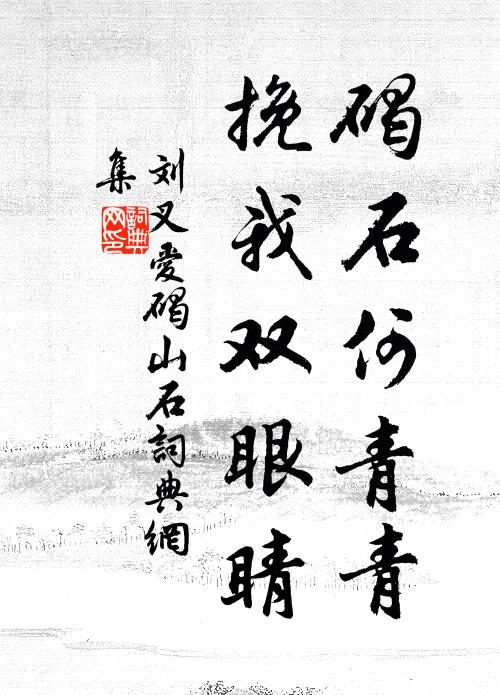 碣石何青青
挽我双眼睛
刘叉爱碣山石詞典網
集
詞典
网印